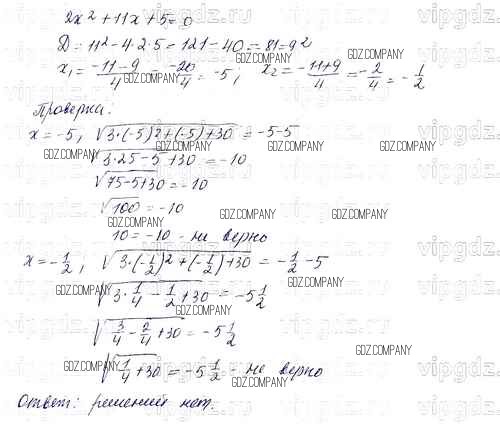 2x² + 11x + 5 = 0
D = 11² - 4·2·5 = 121 - 40 = 81 = 9²
x₁ = (-11-9)/4 = -20/4 = -5, x₂ = (-11+9)/4 = -2/4 = -1/2
Проверка:
x = -5, √(3·(-5)²+(-5)+30) = -5-5
√(3·25-5+30) = -10
√(75-5+30) = -10
√100 = -10
10 = -10 - не верно
x = -1/2, √(3·(-1/2)²+(-1/2)+30) = -1/2 - 5
√(3·1/4 - 1/2 + 30) = -5 1/2
√(3/4 - 2/4 + 30) = -5 1/2
√(1/4 + 30) = -5 1/2 - не верно
Ответ: решений нет.
GDZ.COMPANY
vipgdz.ru